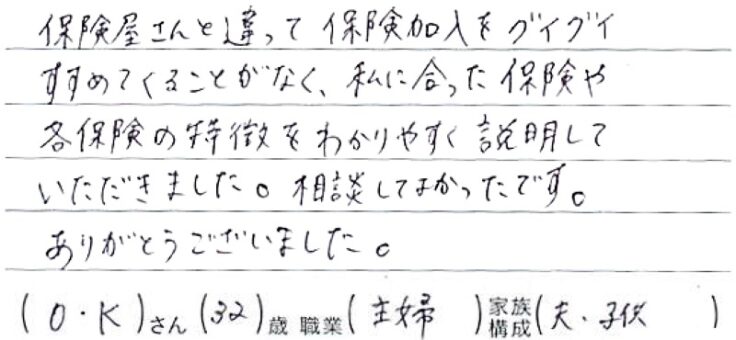 保険屋さんと違って保険加入をグイグイ
すすめてくることがなく、私に合った保険や
各保険の特徴をわかりやすく説明して
いただきました。相談してよかったです。
ありがとうございました。
(O・K)さん(32)歳 職業(主婦)家族構成(夫・子供)